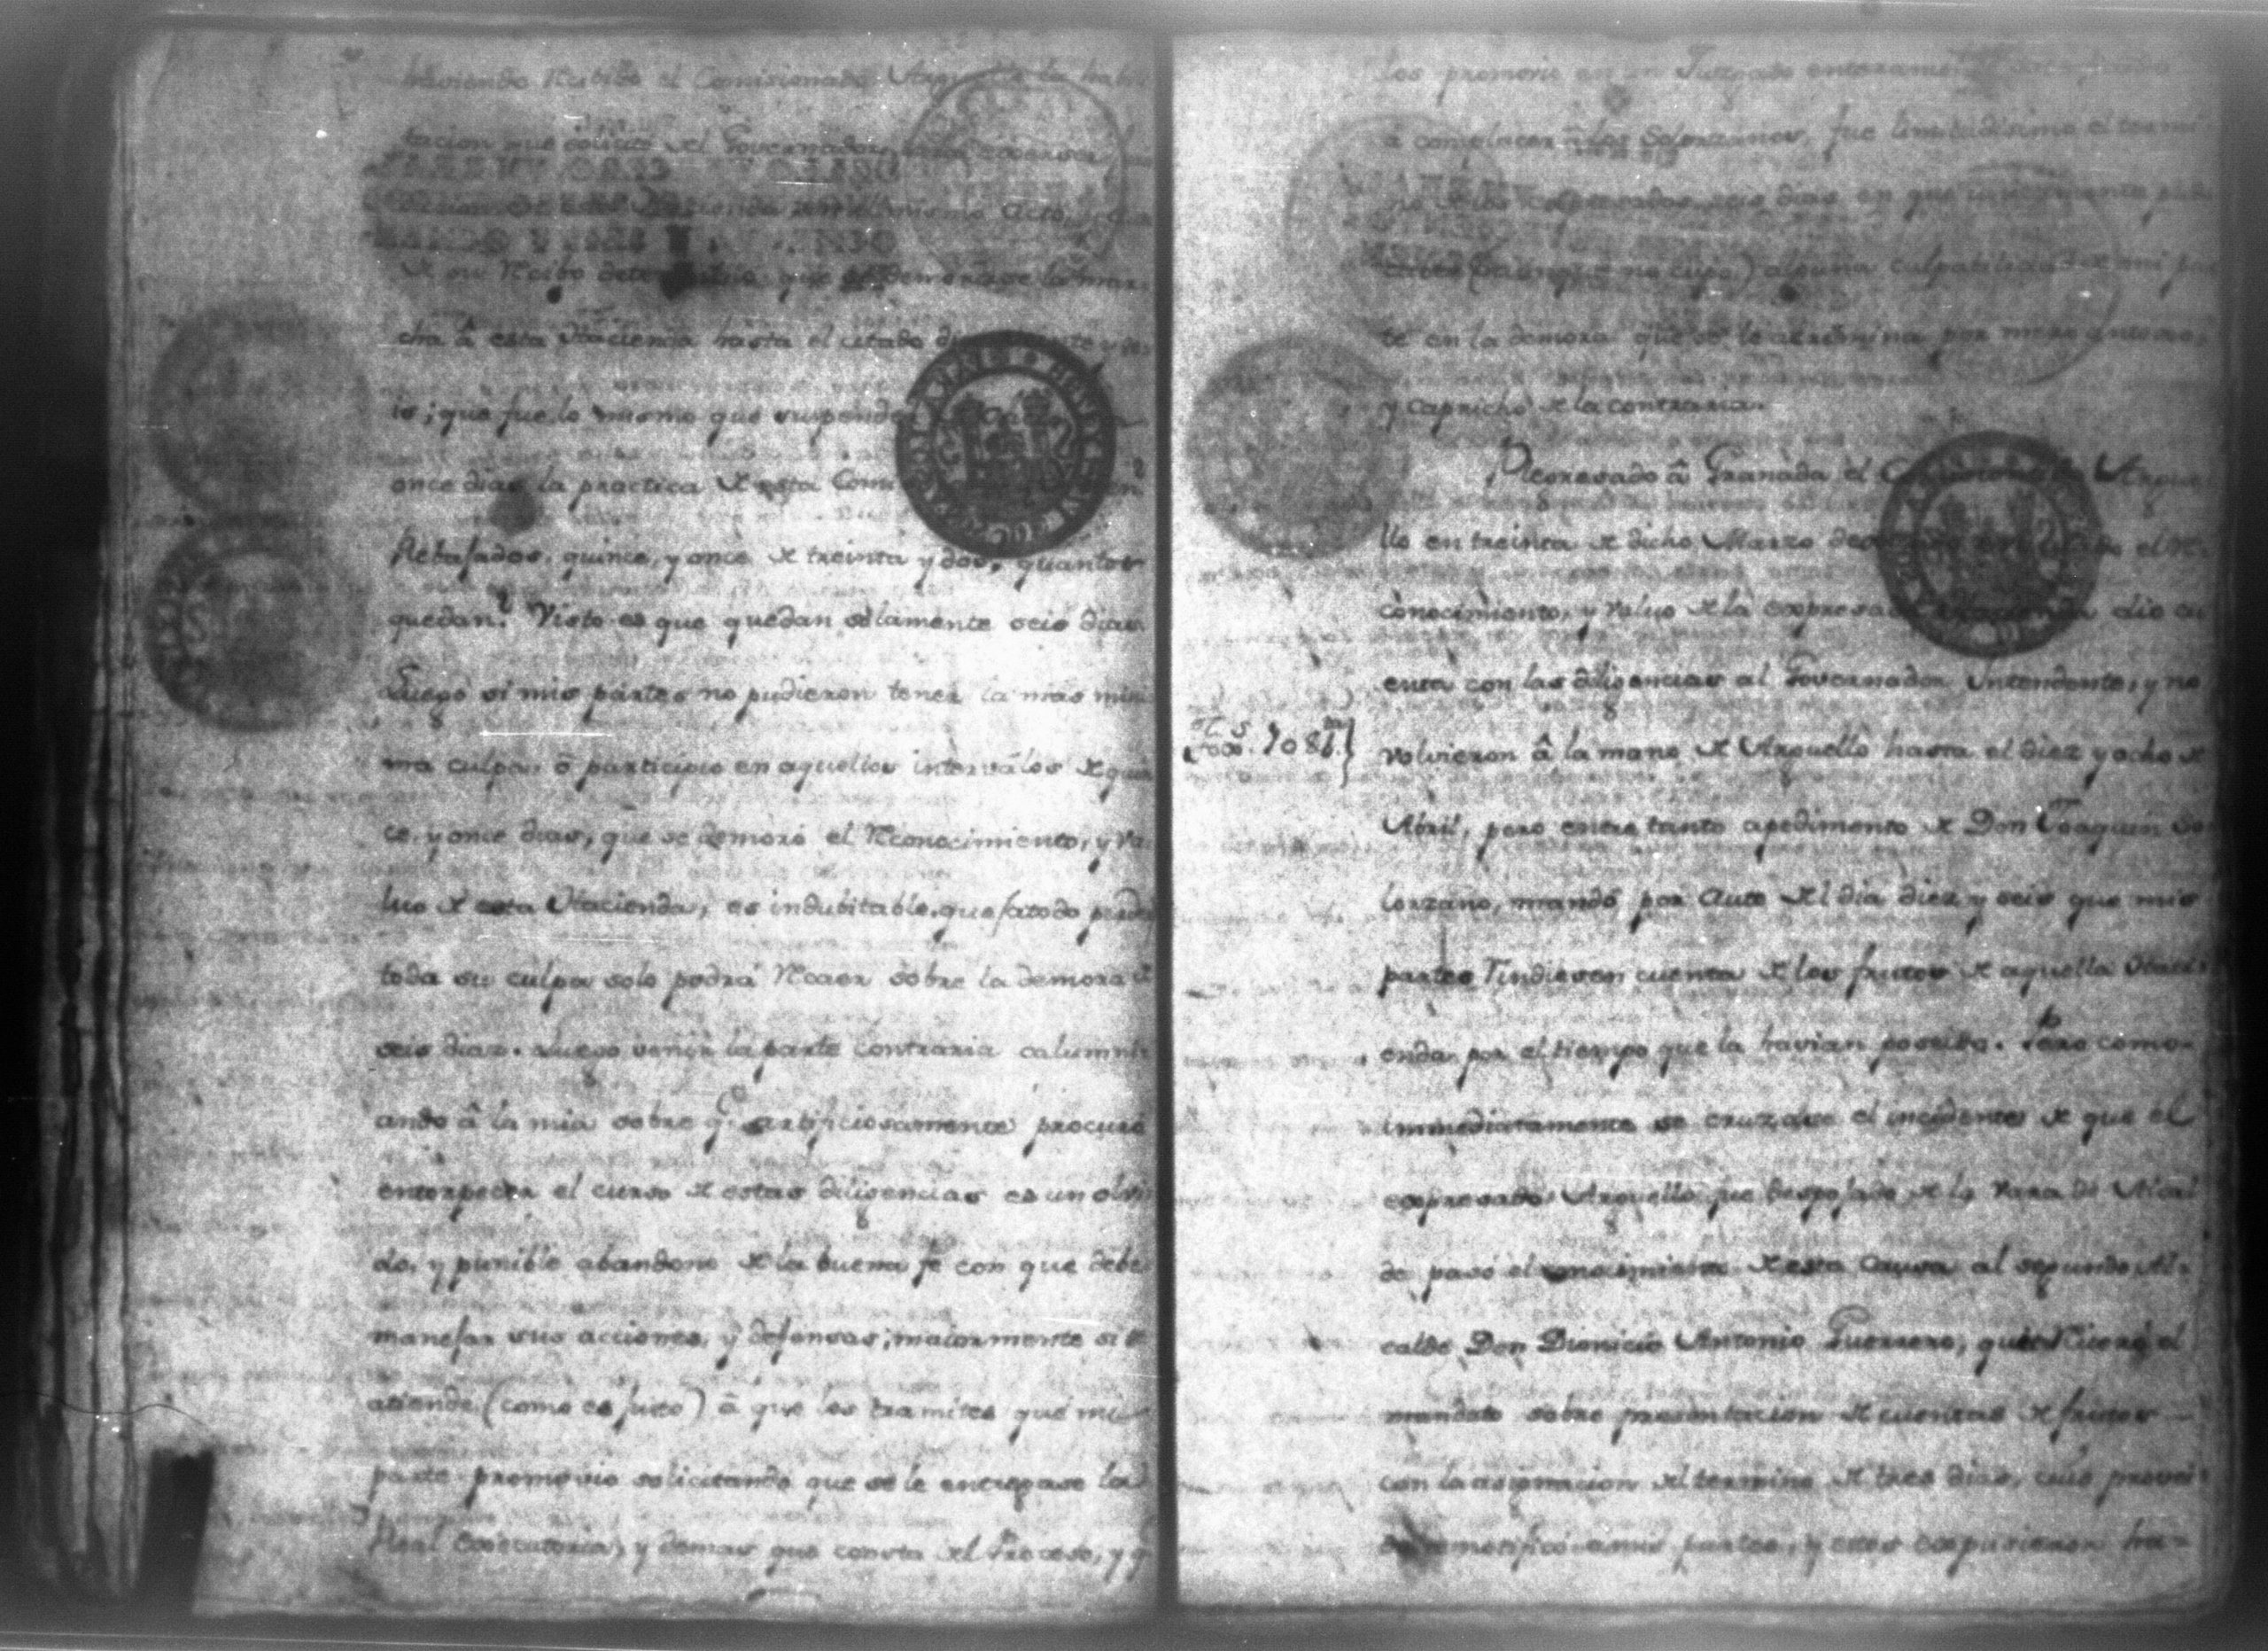 haviendo Recibido el Comisionado Arguello la habi
tacion que solicitó del Governador
Hacienda en el mismo acto,
de su Recibo determinó que se demorase la mar-
cha â esta Hacienda hasta el citado dia veinte y se-
is; que fue lo mismo que suspender
once dias la practica de esta Comi
Rebajados, quince, y once de treinta y dos, quantos
quedan? Visto es que quedan sôlamente seis dias.
Luego si mis partes no pudieron tener la mas mini
ma culpa, ô participio en aquellos intervàlos de quin
ce, y once dias, que se demoró el Reconocimiento, y Va-
luo de esta Hacienda, es indubitable, que
toda su culpa solo podrá Recaer sobre la demora de
seis dias. Luego venir la parte contraria calumni
ando â la mia sobre q.e artificiosamente procuró
entorpecer el curso de estas diligencias es un olvi
do, y punible abandono de la buena fe con que debe
manejar sus acciones, y defensas; maiormente si se
atiende (como es justo) â que los tramites que mi
parte promovio solicitando que se le entregase la
Real Executoria, y demas que consta del Proceso, y q.e
los promovio en un Juzgado enteramente
â complacer â los Solorzanos, fue limitadisimo el termi
no de los expresados seis dias en que
caber (aunque no cupo) alguna culpabilidad de mi par
te en la demora que se le acrimina por mero antojo,
y capricho de la contraria.
Regresado â Granada el Comisionado Argue
llo en treinta de dicho Marzo el Re-
conocimiento, y Valuo de la expresada Hacienda dio cu
enta con las diligencias al Governador Intendente, y no
fojas. 7 o 8 b.ta }
volvieron â la mano de Arguello hasta el diez y ocho de
Abril, pero entre tanto apedimento de Don Joaquin So
lorzano, mandó por Auto del dia diez y seis que mis
partes rindiesen cuenta de los frutos de aquella Haci-
enda por el tiempo que la havian poseido. Pero como
immediatamente se cruzase el incidente de que el
expresado Arguello fue despojado de la Vara de Alcal
de pasó el conocimiento de esta causa al segundo Al-
calde Don Dionicio Antonio Guerrero, quien Riteró el
mandato sobre presentacion de cuentas de frutos
con la asignacion del termino de tres dias, cuio provei-
do se notificó a mis partes, y estos expusieron ha-